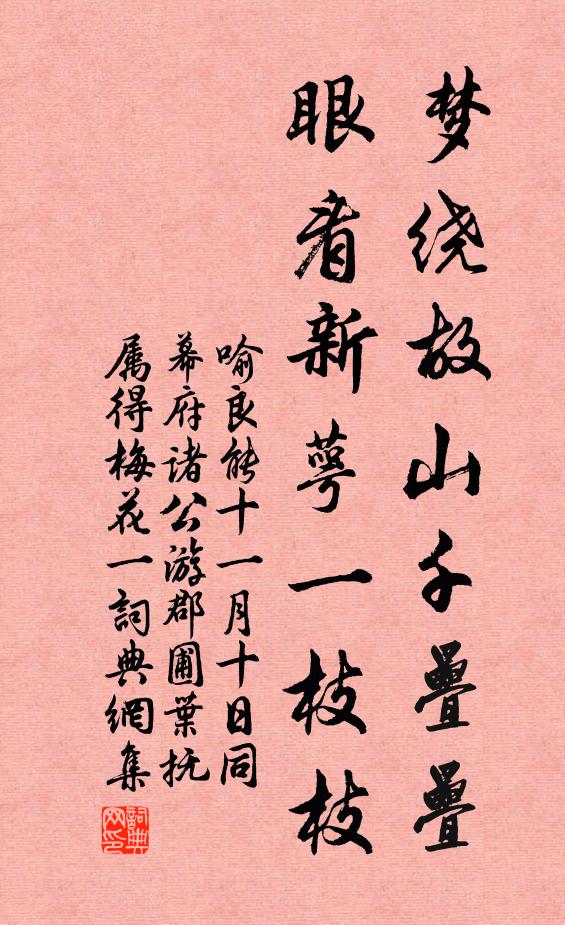 梦绕故山千疊疊
眼看新萼一枝枝
喻良能十一月十日同
幕府诸公游郡圃葉抚
属得梅花一詞典網集
詞典
网印